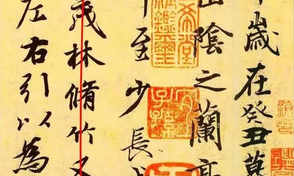 歲在癸丑
山陰之蘭亭
至少長
茂林脩竹又
左右引以為